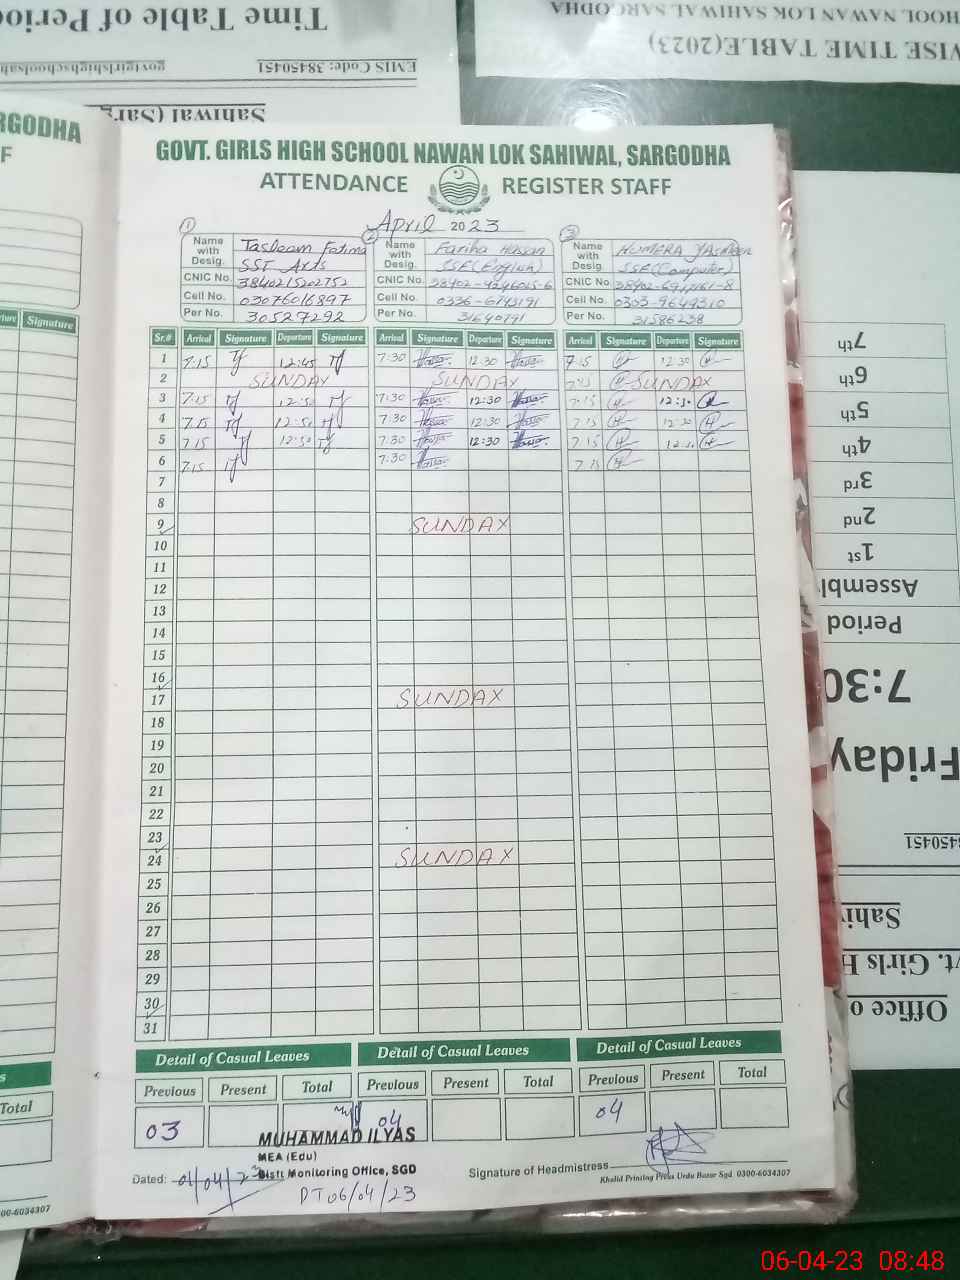 Time Table of Perio
EMIS Code: 38450451
Sahiwal (Sarg
HOOL NAWAN LOK SAHIWAL SARGODHA
WISE TIME TABLE(2023)
RGODHA
F
GOVT. GIRLS HIGH SCHOOL NAWAN LOK SAHIWAL, SARGODHA
ATTENDANCE REGISTER STAFF
April 2023
1 2 3
Name with Desig. Tasleem Fatima SST Arts Name with Desig. Fariha Hassan SSE(English) Name with Desig. HUMERA YASMEEN SSE(Computer)
CNIC No. 3840215202752 CNIC No. CNIC No.
Cell No. 03076016897 Cell No. 0336-6793191 Cell No. 0303-9649310
Per No. 30527292 Per No. 31640791 Per No. 31586238
Signature Sr.# Arrival Signature Departure Signature Arrival Signature Departure Signature Arrival Signature Departure Signature
1 7:15 Tf 12:45 Tf 7:30 12:30 7:15 12:30
2 SUNDAY SUNDAY 7:15 SUNDAY
3 7:15 Tf 12:50 Tf 7:30 12:30 7:15 12:30
4 7:15 Tf 12:50 Tf 7:30 12:30 7:15 12:30
5 7:15 Tf 12:50 Tf 7:30 12:30 7:15 12:30
6 7:15 Tf 7:30 7:15
7
8
9 SUNDAY
10
11
12
13
14
15
16
17 SUNDAY
18
19
20
21
22
23
24 SUNDAY
25
26
27
28
29
30
31
Detail of Casual Leaves Detail of Casual Leaves Detail of Casual Leaves
Total Previous Present Total Previous Present Total Previous Present Total
03 04 04
MUHAMMAD ILYAS
MEA (Edu)
Distt Monitoring Office, SGD
Dated: 01/04/23
DT 06/04/23
Signature of Headmistress
Khalid Printing Press Urdu Bazar Sgd. 0300-6034307
00-6034307
7th
6th
5th
4th
3rd
2nd
1st
Assembl
Period
7:30
Friday
8450451
Sahiw
vt. Girls H
Office o
06-04-23 08:48